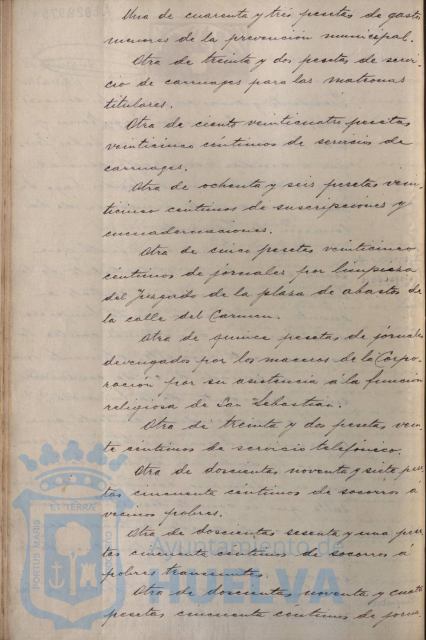 Una de cuarenta y tres pesetas de gastos
menores de la prevención municipal.
Otra de treinta y dos pesetas de servi-
cio de carruages para las matronas
titulares.
Otra de ciento veinticuatro pesetas
veinticinco céntimos de servicio de
carruages.
Otra de ochenta y seis pesetas vein-
ticinco céntimos de suscripciones y
encuadernaciones.
Otra de cinco pesetas veinticinco
céntimos de jornales por limpieza
del Juzgado de la plaza de abastos de
la calle del Carmen.
Otra de quince pesetas de jornales
devengados por los maceros de la Corpo-
ración por su asistencia á la función
religiosa de San Sebastian.
Otra de treinta y dos pesetas vein-
te céntimos de servicio telefónico.
Otra de doscientas noventa y siete pese-
tas cincuenta céntimos de socorros á
vecinos pobres.
Otra de doscientas sesenta y una pese-
tas cincuenta céntimos de socorros á
pobres transeuntes.
Otra de doscientas noventa y cuatro
pesetas cincuenta céntimos de jorna-
PORTUS MARIS
ET TERRÆ
Ayuntamiento de
HUELVA